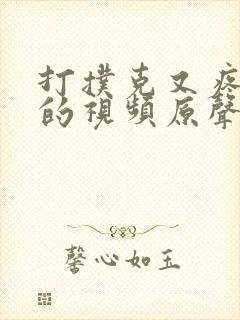 打撲克又疼
的視頻原聲
馨心如玉